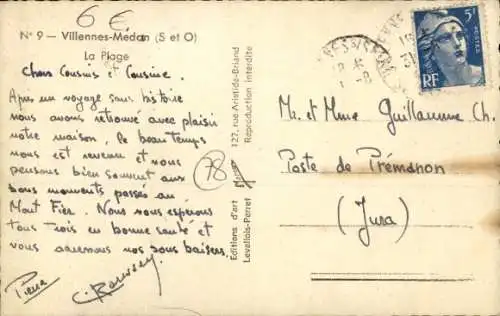 6 €
N° 9 - Villennes-Médan (S et O)
La Plage
Chers Cousins et Cousine.
Après un voyage sans histoire
nous avons retrouvé avec plaisir
notre maison, le beau temps
nous est revenu et nous
pensons bien souvent aux
bons moments passés au
Mont Fier. Nous nous espérons
tous trois en bonne santé et
vous adressons nos bons baisers.
Pierre
78
Editions d'art
Levallois-Perret
127, rue Aristide-Briand
Reproduction interdite
5F
POSTES
RF
M. et Mme Guillaume Ch.
Poste de Prémanon
(Jura)